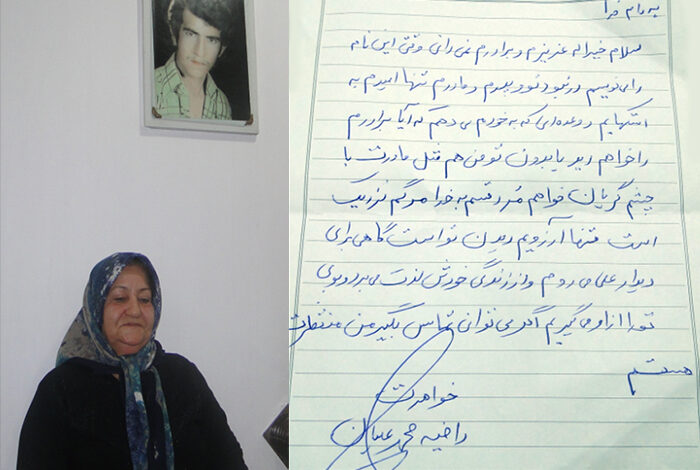 به نام خدا
سلام خیراله عزیزم و برادرم نمی دانی وقتی این نامه
را می نویسم در نبود تو و پدرم و مادرم تنها امیدم به
انتهایم و وعده ای که به خودم می دهم که آیا برادرم
را خواهم دید یا بدون تو من هم مثل مادرت با
چشم گریان خواهم مرد قسم به خدا مرگم نزدیک
است تنها آرزویم دیدن تو است گاهی برای
دیدار علی می روم و از زندگی خودش لذت می برد و بوی
تو را از او می گیرم اگر می توانی تماس بگیر من منتظرت
هستم
خواهرت
راضیه محمدعلیان